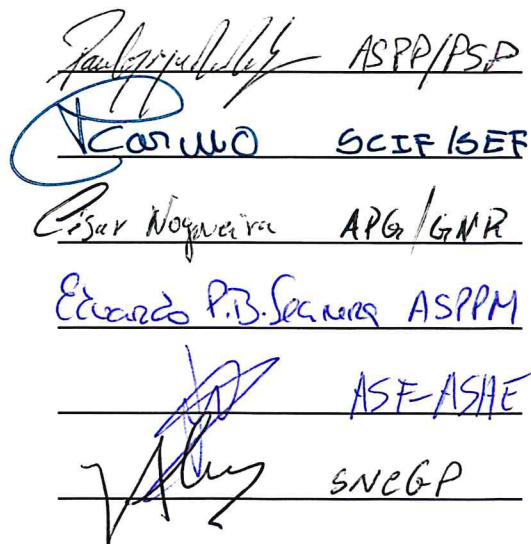 ASPP/PSP
Carmo SCIF/SEF
César Nogueira APG/GNR
Eduardo P.B. ASPPM
ASF-ASAE
SNCGP